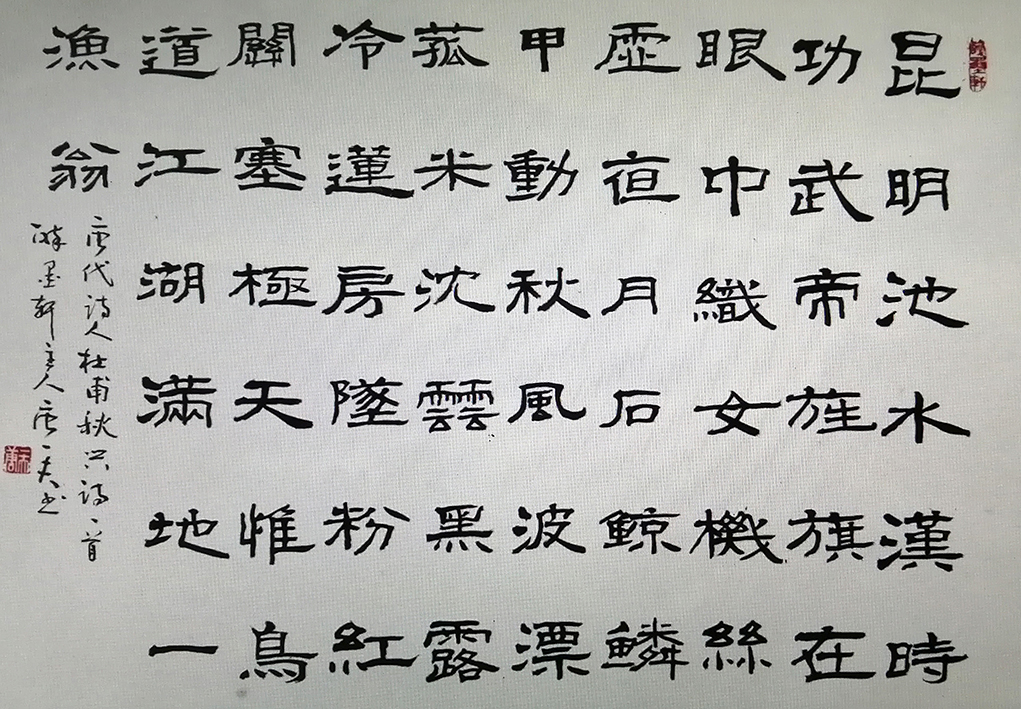 昆明池水漢時
功武帝旌旗在
眼中織女機絲
虛夜月石鯨鱗
甲動秋風波漂
菰米沈雲黑露
冷蓮房墜粉紅
關塞極天惟鳥
道江湖滿地一
漁翁
唐代诗人杜甫秋兴诗一首
墨軒主人唐一夫书